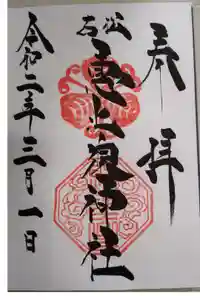 奉拝
恵比須神社
令和二年三月一日